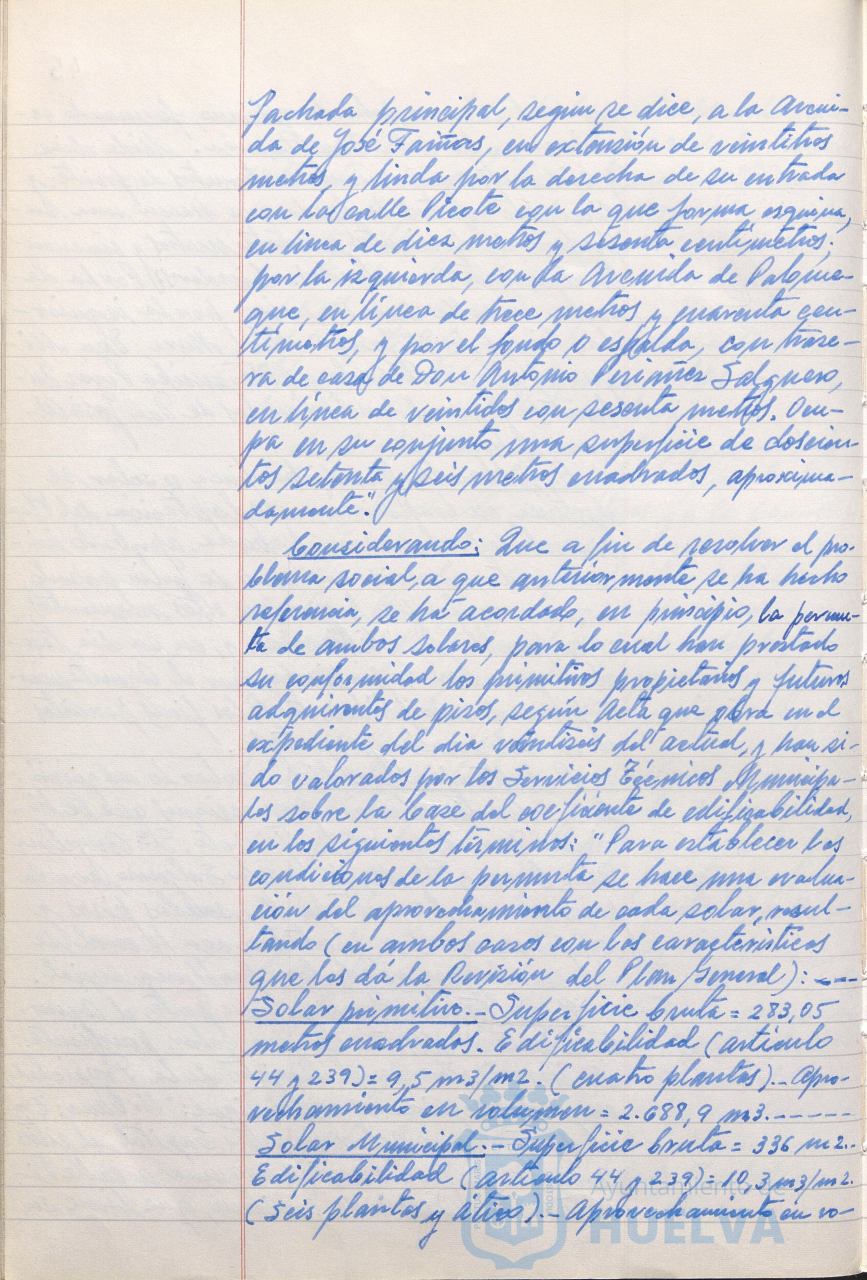 Fachada principal, según se dice, a la Aveni-
da de José Fariñas, en extensión de veintitres
metros, y linda por la derecha de su entrada
con la calle Picote con la que forma esquina,
en línea de diez metros y sesenta centímetros;
por la izquierda, con la Avenida de Palome-
que, en línea de trece metros y cuarenta cen-
tímetros, y por el fondo o espalda, con trase-
ra de casa de Don Antonio Periañez Salguero,
en línea de veintidos con sesenta metros. Ocu-
pa en su conjunto una superficie de doscien-
tos setenta y seis metros cuadrados, aproxima-
damente".
Considerando: Que a fin de resolver el pro-
blema social, a que anteriormente se ha hecho
referencia, se ha acordado, en principio, la permu-
ta de ambos solares, para lo cual han prestado
su conformidad los primitivos propietarios y futuros
adquirentes de pisos, según Acta que obra en el
expediente del dia veintiseis del actual, y han si-
do valorados por los Servicios Técnicos Municipa-
les sobre la base del coeficiente de edificabilidad,
en los siguientes términos: "Para establecer las
condiciones de la permuta se hace una evalua-
ción del aprovechamiento de cada solar, resul-
tando (en ambos casos con las características
que los dá la Revisión del Plan General): ----
Solar primitivo.- Superficie bruta = 283,05
metros cuadrados. Edificabilidad (artículo
44 y 239) = 9,5 m3/m2. (cuatro plantas).- Apro-
vechamiento en volumen = 2.688,9 m3.------
Solar Municipal.- Superficie bruta = 336 m2.-
Edificabilidad (artículo 44 y 239) = 10,3 m3/m2.
(Seis plantas y ático).- Aprovechamiento en vo-
Ayuntamiento de
HUELVA